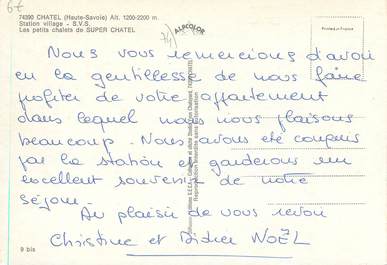 6€
74390 CHATEL (Haute-Savoie) Alt. 1200-2200 m.
Station village - S.V.S.
Les petits chalets de SUPER CHATEL
74
ALPCOLOR
Printed in France
Nous vous remercions d'avoir
eu la gentillesse de nous faire
profiter de votre appartement
dans lequel nous nous plaisons
beaucoup. Nous avons été conquis
par la station et garderons un
excellent souvenir de notre
séjour.
Au plaisir de vous revoir
Christine et Didier NOËL
9 bis